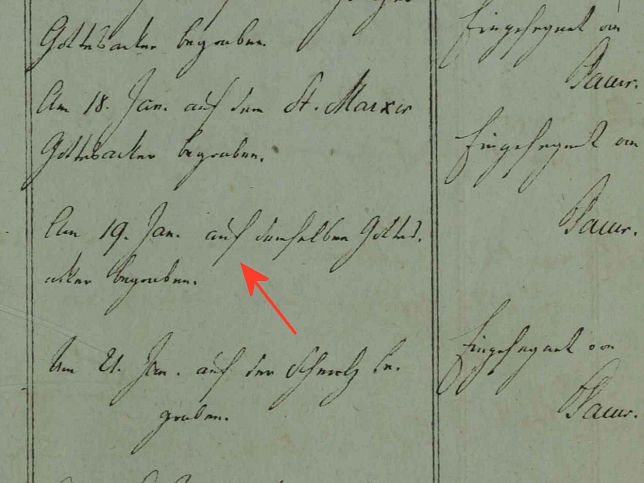 Gottesacker begraben.
Am 18. Jan. auf dem St. Marxer
Gottesacker begraben.
Am 19. Jan. auf demselben Gottes-
acker begraben.
Am 21. Jan. auf der Schmelz be-
graben.
Eingesegnet von
Paur.
Eingesegnet von
Paur.
Eingesegnet von
Paur.